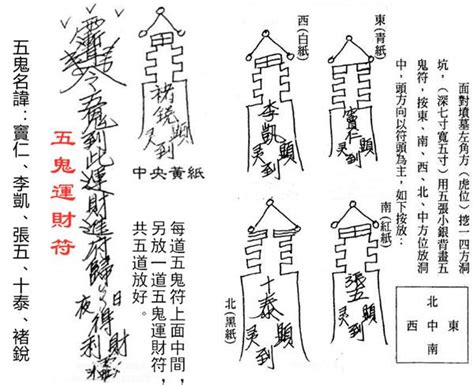 面對墳墓左角方(虎位)挖一四方洞
坑，(深七寸寬五寸)用五張小銀背畫五
鬼符，按東、南、西、北、中方位放洞
中，頭方向以符頭為主，如下按放：
北
東
中
西
南
東(青紙)
竇仁
顯
灵到
西(白紙)
李凱
顯
灵到
南(紅紙)
張五
顯
灵到
北(黑紙)
十泰
顯
灵到
褚銳
顯
灵到
中央黃紙
每道五鬼符上面中間，
另放一道五鬼運財符，
共五道放好。
令五鬼到此運財進符歸
日
夜
得
財
利
五鬼運財符
五鬼名諱：竇仁、李凱、張五、十泰、褚銳